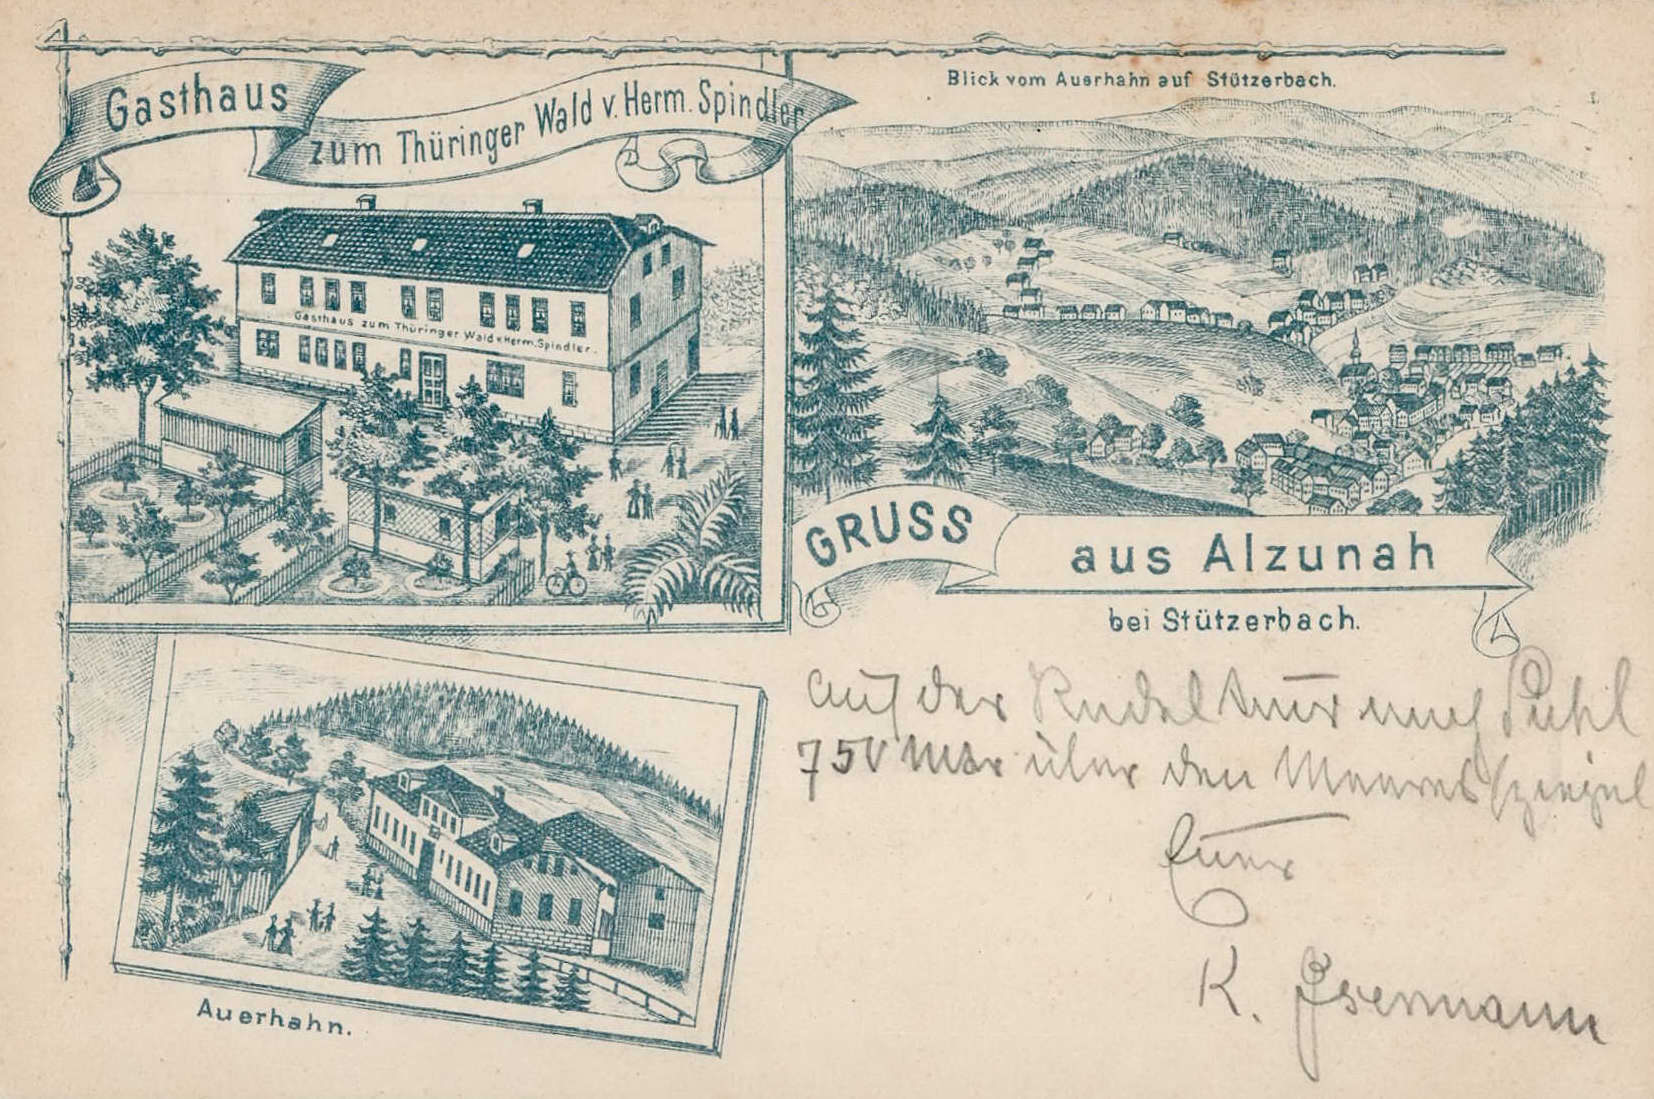 Gasthaus
zum Thüringer Wald v. Herm. Spindler
Blick vom Auerhahn auf Stützerbach.
Gasthaus zum Thüringer Wald v. Herm. Spindler.
GRUSS
aus Alzunah
bei Stützerbach.
Auf der Rudel tour nach
750 Mtr über den Meeresspiegel
Euer
K. Isermann
Auerhahn.